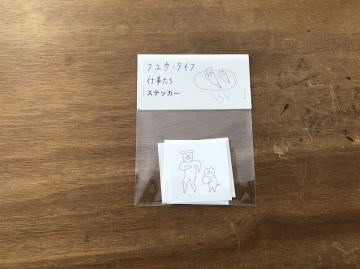 フユウ・ライフ
仕事たち
ステッカー